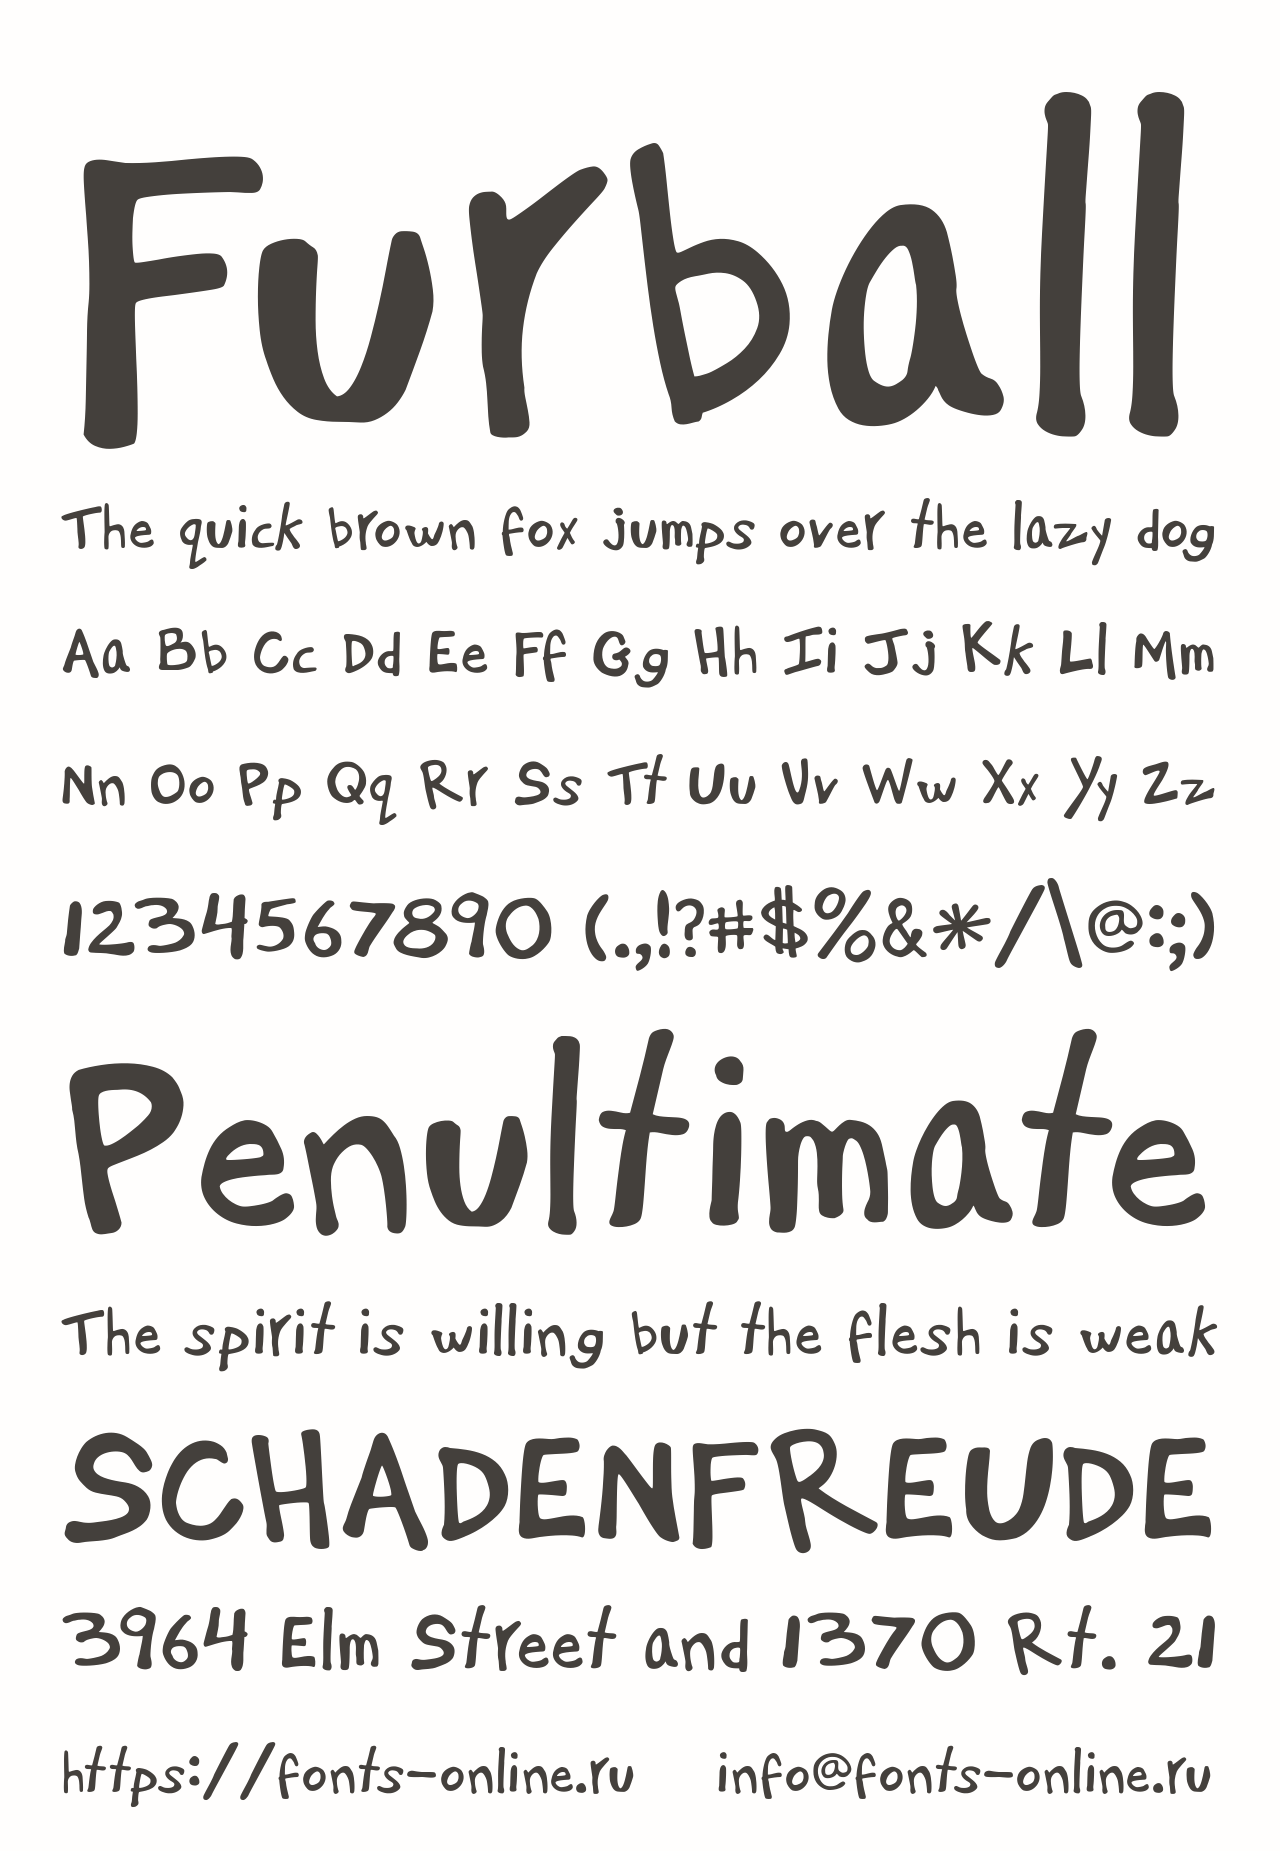 Furball
The quick brown fox jumps over the lazy dog
Aa Bb Cc Dd Ee Ff Gg Hh Ii Jj Kk Ll Mm
Nn Oo Pp Qq Rr Ss Tt Uu Vv Ww Xx Yy Zz
1234567890 (.,!?#$%&*/\@:;)
Penultimate
The spirit is willing but the flesh is weak
SCHADENFREUDE
3964 Elm Street and 1370 Rt. 21
https://fonts-online.ru info@fonts-online.ru